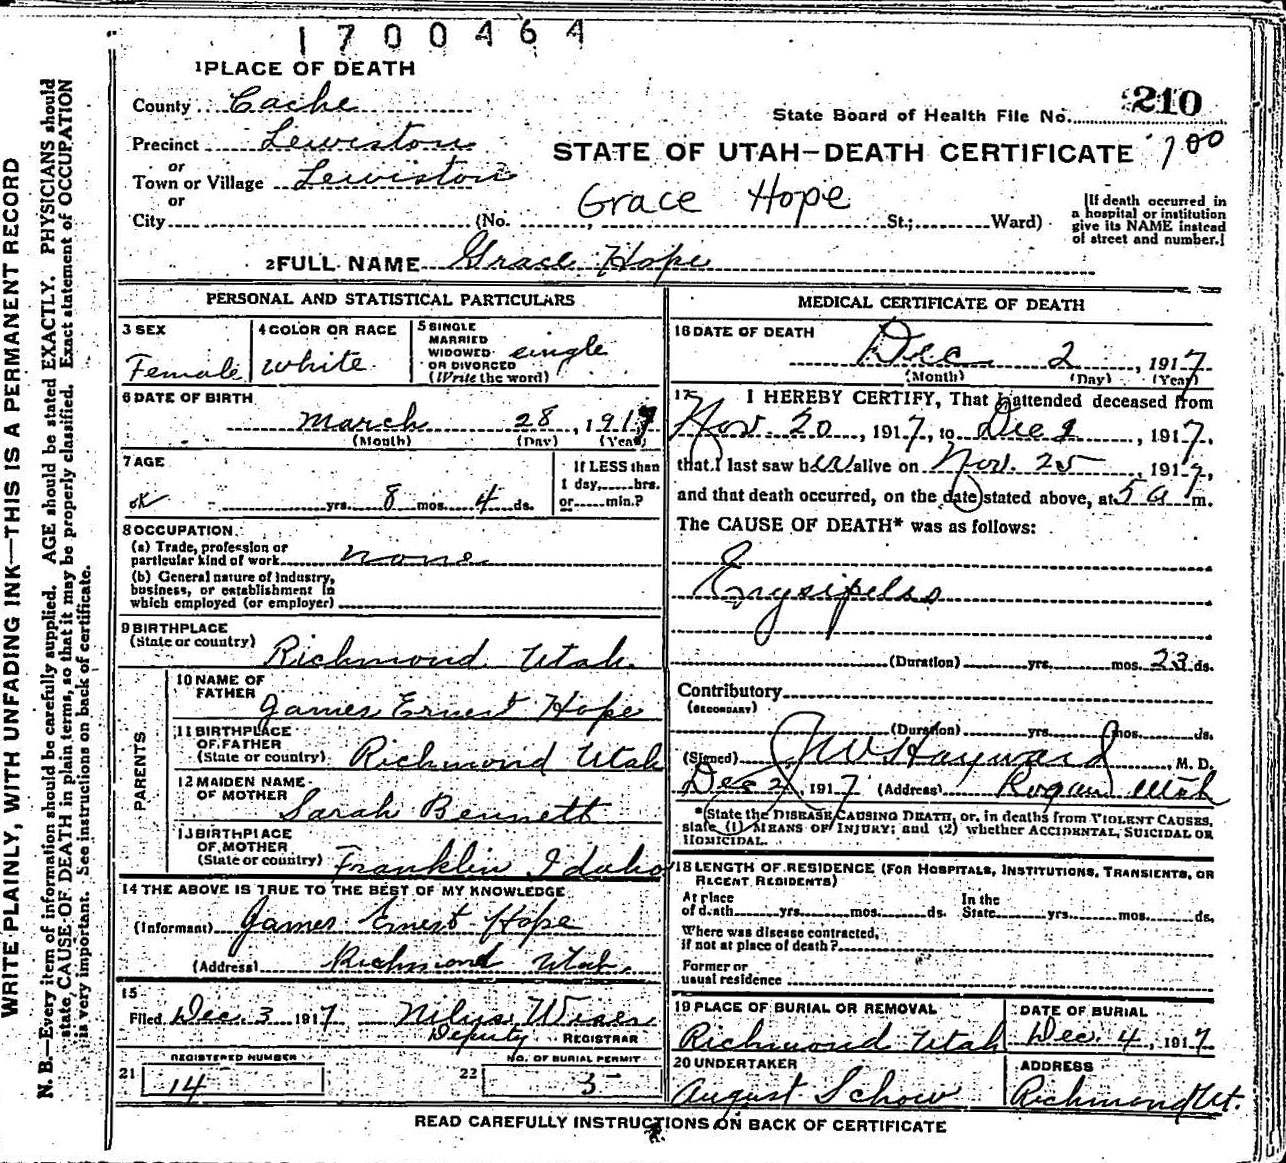 1700464
1 PLACE OF DEATH
County Cache
State Board of Health File No. 210
Precinct Lewiston
or
STATE OF UTAH—DEATH CERTIFICATE 700
Town or Village Lewiston
or
Grace Hope
City (No. St.; Ward)
[If death occurred in
a hospital or institution
give its NAME instead
of street and number.]
2 FULL NAME Grace Hope
PERSONAL AND STATISTICAL PARTICULARS
3 SEX
Female
4 COLOR OR RACE
White
5 SINGLE
MARRIED
WIDOWED
OR DIVORCED
(Write the word)
single
6 DATE OF BIRTH
March 28, 1917
(Month) (Day) (Year)
7 AGE
ok yrs. 8 mos. 4 ds.
If LESS than
1 day, hrs.
or min.?
8 OCCUPATION
(a) Trade, profession or
particular kind of work none
(b) General nature of industry,
business, or establishment in
which employed (or employer)
9 BIRTHPLACE
(State or country) Richmond Utah
PARENTS
10 NAME OF
FATHER James Ernest Hope
11 BIRTHPLACE
OF FATHER
(State or country) Richmond Utah
12 MAIDEN NAME
OF MOTHER Sarah Bennett
13 BIRTHPLACE
OF MOTHER
(State or country) Franklin Idaho
14 THE ABOVE IS TRUE TO THE BEST OF MY KNOWLEDGE
(Informant) James Ernest Hope
(Address) Richmond Utah.
15
Filed Dec. 3 1917 Nilus Wiser
Deputy REGISTRAR
REGISTERED NUMBER
21 14
NO. OF BURIAL PERMIT
22 5
MEDICAL CERTIFICATE OF DEATH
16 DATE OF DEATH
Dec 2, 1917
(Month) (Day) (Year)
17 I HEREBY CERTIFY, That I attended deceased from
Nov. 20, 1917, to Dec 2, 1917,
that I last saw her alive on Nov. 25, 1917,
and that death occurred, on the date stated above, at 5 a m.
The CAUSE OF DEATH* was as follows:
Erysipelas
(Duration) yrs. mos. 23 ds.
Contributory
(SECONDARY)
(Duration) yrs. mos. ds.
(Signed) J W Hayward, M. D.
Dec 2, 1917 (Address) Logan Utah
*State the DISEASE CAUSING DEATH, or, in deaths from VIOLENT CAUSES,
state (1) MEANS OF INJURY; and (2) whether ACCIDENTAL, SUICIDAL OR
HOMICIDAL.
18 LENGTH OF RESIDENCE (FOR HOSPITALS, INSTITUTIONS, TRANSIENTS, OR
RECENT RESIDENTS)
At place
of death yrs. mos. ds.
In the
State yrs. mos. ds.
Where was disease contracted,
if not at place of death?
Former or
usual residence
19 PLACE OF BURIAL OR REMOVAL
Richmond Utah
DATE OF BURIAL
Dec. 4, 1917
20 UNDERTAKER
August Schow
ADDRESS
Richmond Ut.
READ CAREFULLY INSTRUCTIONS ON BACK OF CERTIFICATE
WRITE PLAINLY, WITH UNFADING INK—THIS IS A PERMANENT RECORD
N. B.—Every item of information should be carefully supplied. AGE should be stated EXACTLY. PHYSICIANS should
state CAUSE OF DEATH in plain terms, so that it may be properly classified. Exact statement of OCCUPATION
is very important. See instructions on back of certificate.